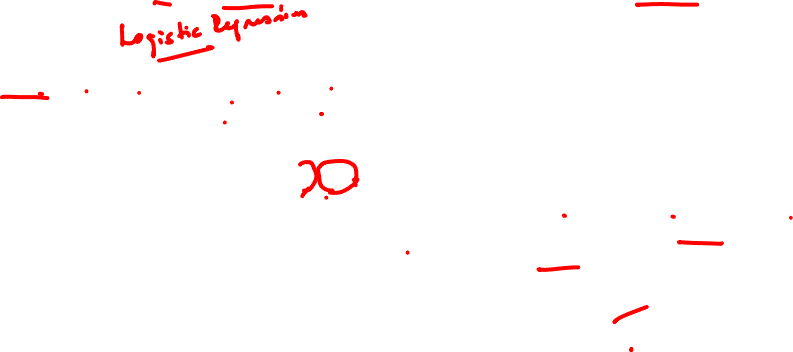 Logistic Regression